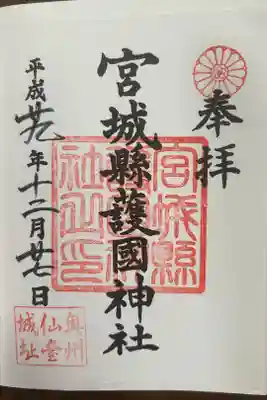 奉拝
宮城縣護國神社
宮城縣護國神社之印
平成廿九年十二月廿七日
奥州仙臺城址